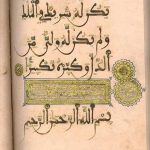 يَكُن لَّهُ شَرِيكٌ فِي الْمُلْكِ
وَلَمْ يَكُن لَّهُ وَلِيٌّ مِّنَ
الذُّلِّ وَكَبِّرْهُ تَكْبِيرًا
بِسْمِ اللَّهِ الرَّحْمَٰنِ الرَّحِيمِ